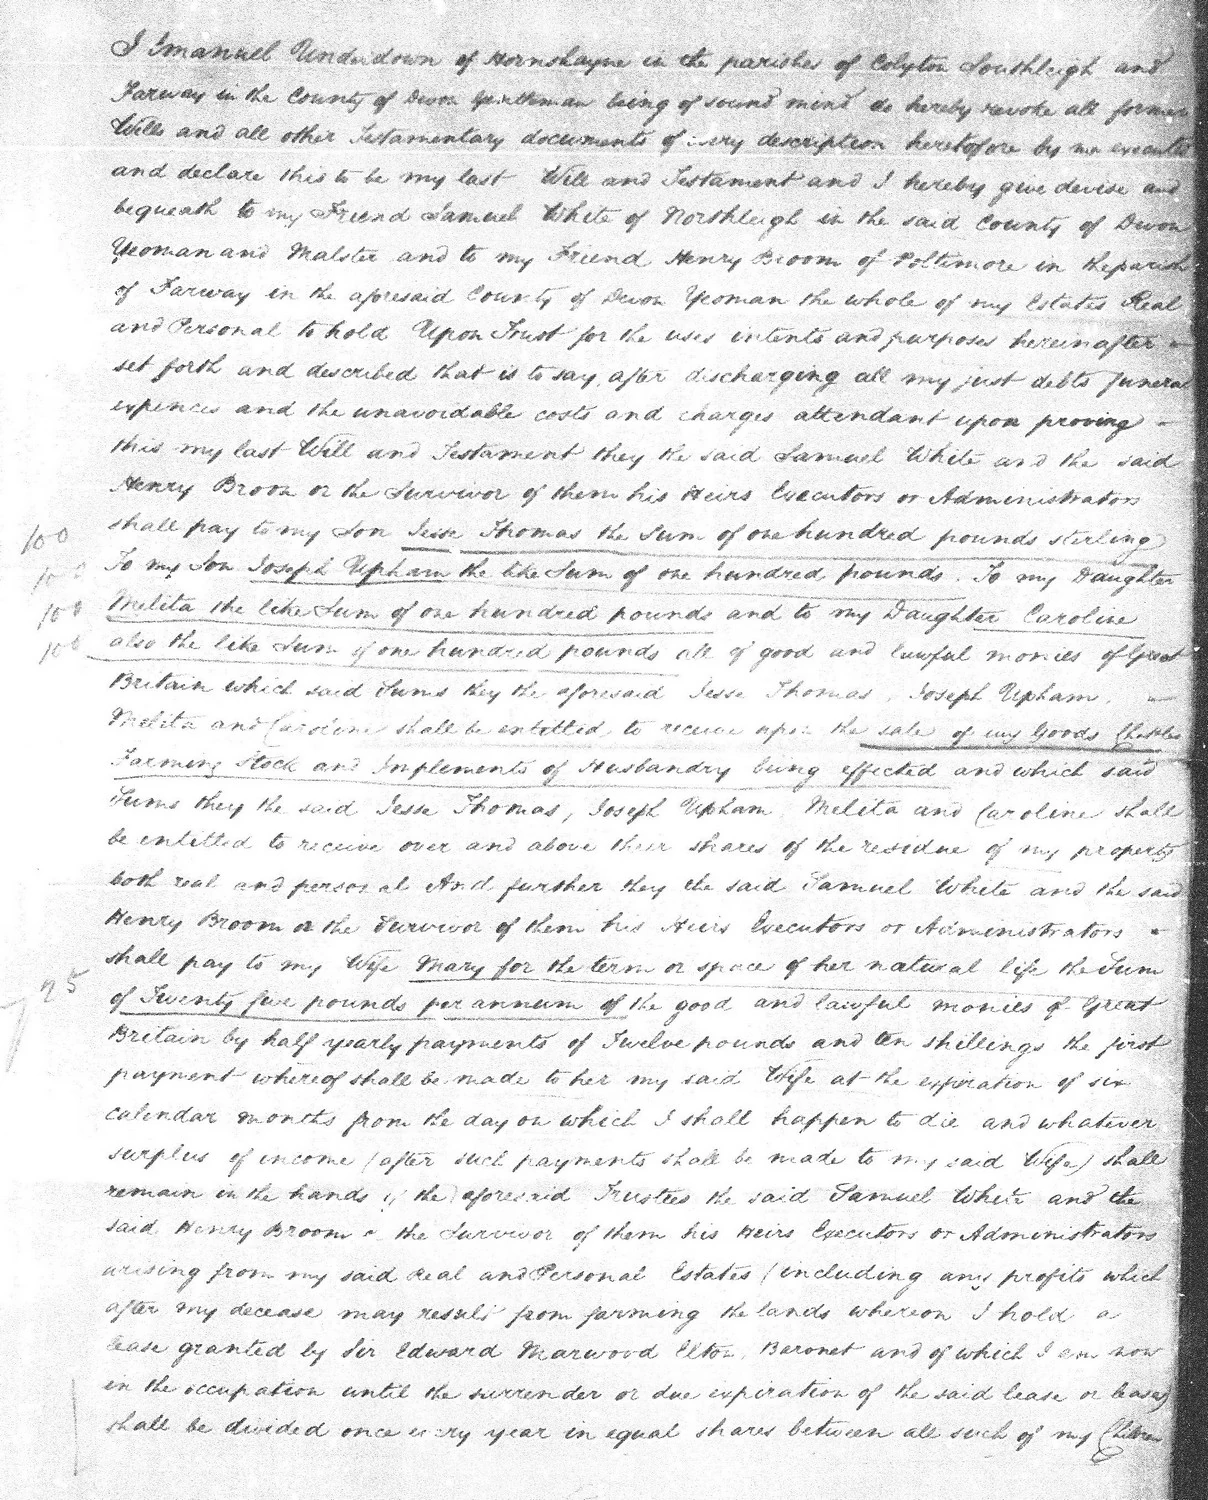 I Emanuel Underdown of Hornshayne in the parishes of Colyton Southleigh and
Farway in the County of Devon Gentleman being of sound mind do hereby revoke all former
Wills and all other Testamentary documents of every description heretofore by me executed
and declare this to be my last Will and Testament and I hereby give devise and
bequeath to my Friend Samuel White of Northleigh in the said County of Devon
Yeoman and Malster and to my Friend Henry Broom of Poltimore in the parish
of Farway in the aforesaid County of Devon Yeoman the whole of my Estates Real
and Personal to hold Upon Trust for the uses intents and purposes hereinafter -
set forth and described that is to say, after discharging all my just debts funeral
expences and the unavoidable costs and charges attendant upon proving -
this my last Will and Testament they the said Samuel White and the said
Henry Broom or the Survivor of them his Heirs Executors or Administrators
100 shall pay to my Son Jesse Thomas the Sum of one hundred pounds sterling
100 To my Son Joseph Upham the like Sum of one hundred pounds. To my Daughter
100 Melita the like Sum of one hundred pounds and to my Daughter Caroline
100 also the like Sum of one hundred pounds all of good and lawful monies of Great
Britain which said Sums they the aforesaid Jesse Thomas, Joseph Upham, -
Melita and Caroline shall be entitled to receive upon the sale of my Goods Chattles
Farming Stock and Implements of Husbandry being effected and which said
Sums they the said Jesse Thomas, Joseph Upham Melita and Caroline shall
be entitled to receive over and above their shares of the residue of my property
both real and personal And further they the said Samuel White and the said
Henry Broom or the Survivor of them his Heirs Executors or Administrators -
shall pay to my Wife Mary for the term or space of her natural life the Sum
25 of Twenty five pounds per annum of the good and lawful monies of Great
Britain by half yearly payments of Twelve pounds and ten shillings the first
payment whereof shall be made to her my said Wife at the expiration of six
calendar months from the day on which I shall happen to die and whatever
surplus of income (after such payments shall be made to my said Wife) shall
remain in the hands of the aforesaid Trustees the said Samuel White and the
said Henry Broom or the Survivor of them his Heirs Executors or Administrators
arising from my said Real and Personal Estates (including any profits which
after my decease may result from farming the lands whereon I hold a
lease granted by Sir Edward Marwood Elton, Baronet and of which I am now
in the occupation until the surrender or due expiration of the said lease or leases)
shall be divided once every year in equal shares between all such of my Children